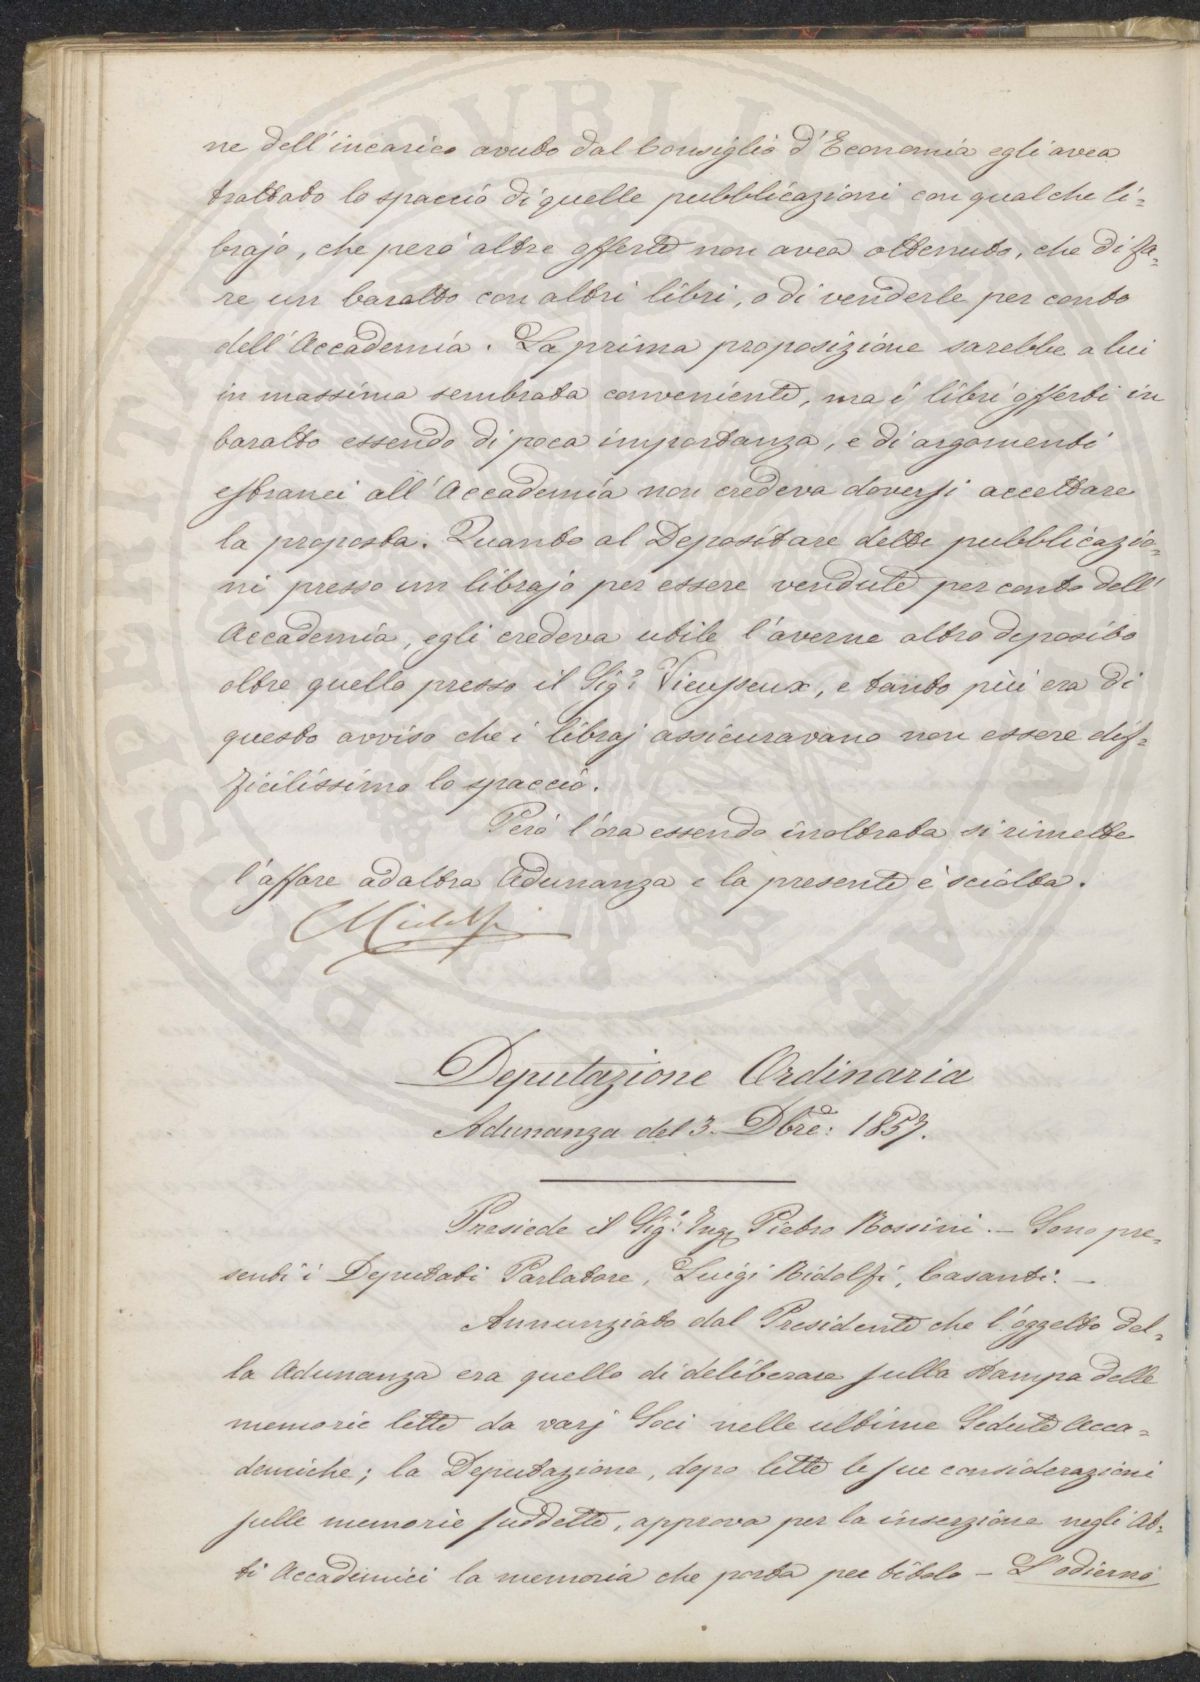 ne dell'incarico avuto dal Consiglio d'Economia egli avea
trattato lo spaccio di quelle pubblicazioni con qualche li=
brajo, che però altre offerte non avea ottenuto, che di fa=
re un baratto con altri libri, o di venderle per conto
dell'Accademia. La prima proposizione sarebbe a lui
in massima sembrata conveniente, ma i libri offerti in
baratto essendo di poca importanza, e di argomenti
estranei all'Accademia non credeva doversi accettare
la proposta. Quanto al Depositare dette pubblicazio=
ni presso un librajo per essere vendute per conto dell'
Accademia, egli credeva utile l'averne altro deposito
oltre quello presso il Sigr. Vieusseux, e tanto più era di
questo avviso che i libraj assicuravano non essere dif=
ficilissimo lo spaccio.
Però l'ora essendo inoltrata si rimette
l'affare ad altra Adunanza e la presente è sciolta.
Deputazione Ordinaria
Adunanza del 3. Dbre: 1857.
Presiede il Sigr. Ingr Pietro Rossini. — Sono pre=
senti i Deputati Parlatore, Luigi Ridolfi, Casanti. —
Annunziato dal Presidente che l'oggetto del=
la Adunanza era quello di deliberare sulla stampa delle
memorie lette da varj Soci nelle ultime Sedute Acca=
demiche; la Deputazione, dopo lette le sue considerazioni
sulle memorie suddette, approva per la inserzione negli At=
ti Accademici la memoria che porta per titolo — L'odierno
PROSPERITATI PUBLICAE AUGENDAE